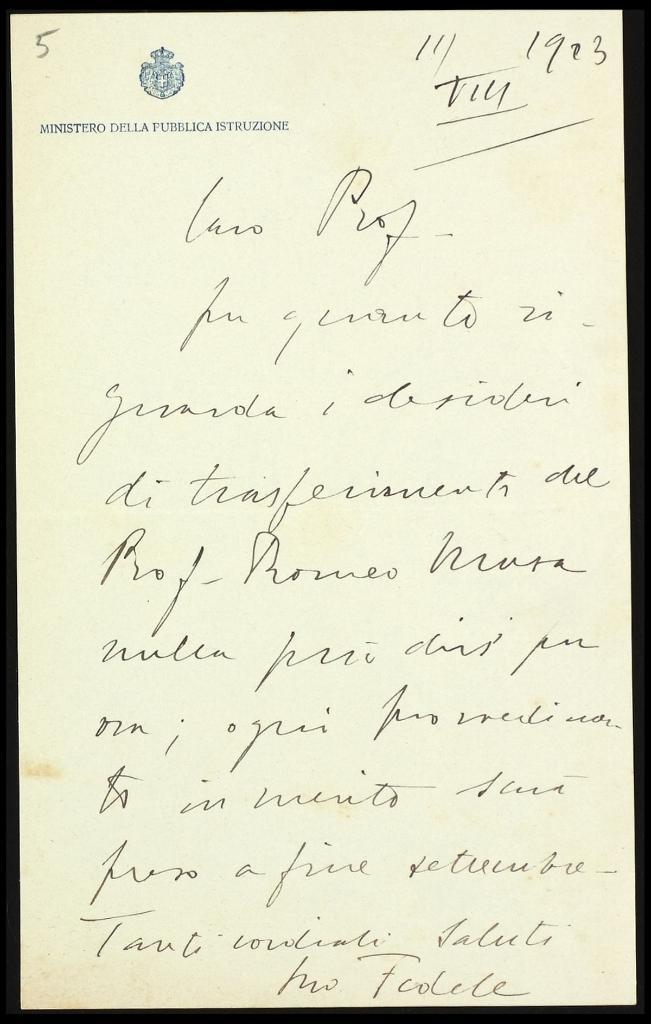 5
11/VIII 1923
MINISTERO DELLA PUBBLICA ISTRUZIONE
Caro Prof-
per quanto ri-
guarda i desideri
di trasferimento del
Prof- Romeo Musa
nulla può dirsi per
ora; ogni provvedimen-
to in merito sarà
preso a fine settembre-
Tanti cordiali saluti
suo Fedele